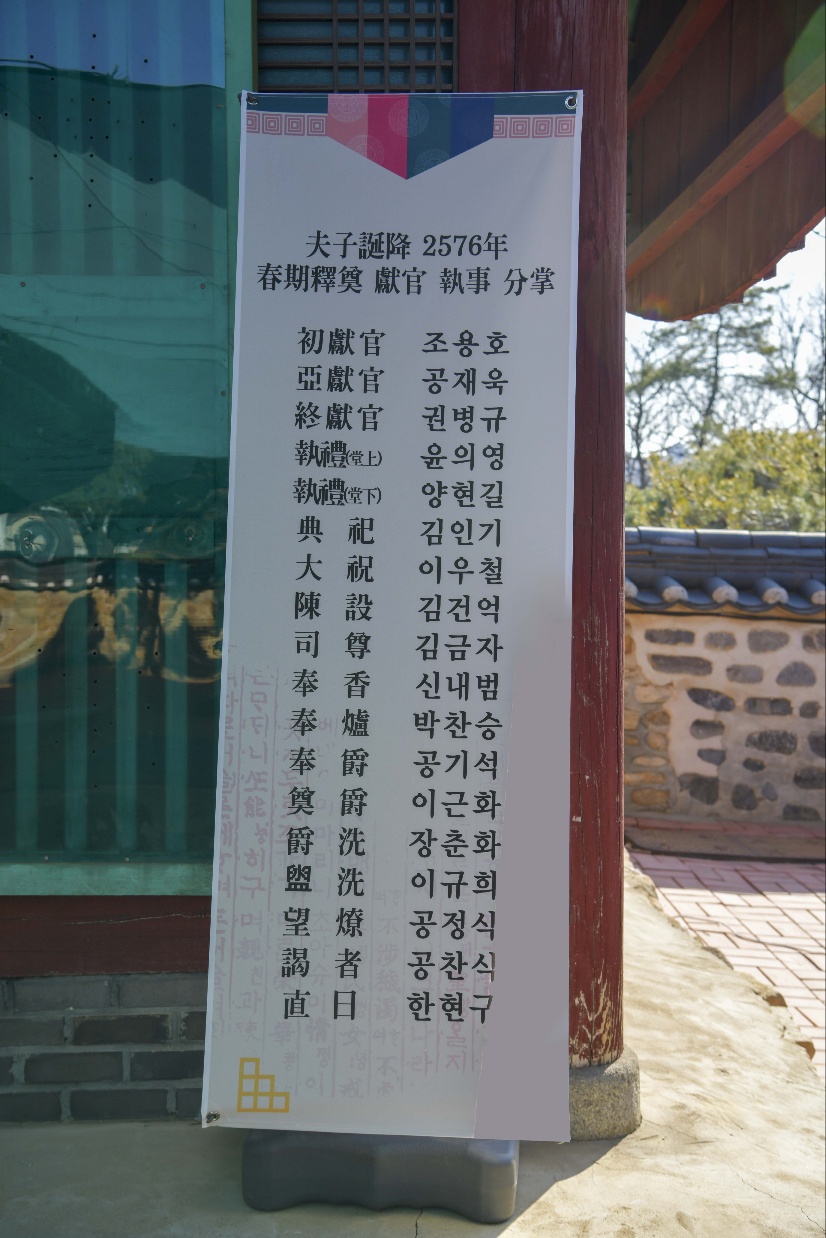 夫子誕降 2576年
春期釋奠 獻官 執事 分掌
初獻官 조용호
亞獻官 공재욱
終獻官 권병규
執禮(堂上) 윤의영
執禮(堂下) 양현길
典 祀 김인기
大 祝 이우철
陳 設 김건억
司 尊 김금자
奉 香 신내범
奉 爐 박찬승
奉 爵 공기석
奠 爵 이근화
爵 洗 장춘화
盥 洗 이규희
望 燎 공정식
謁 者 공찬식
直 日 한현구